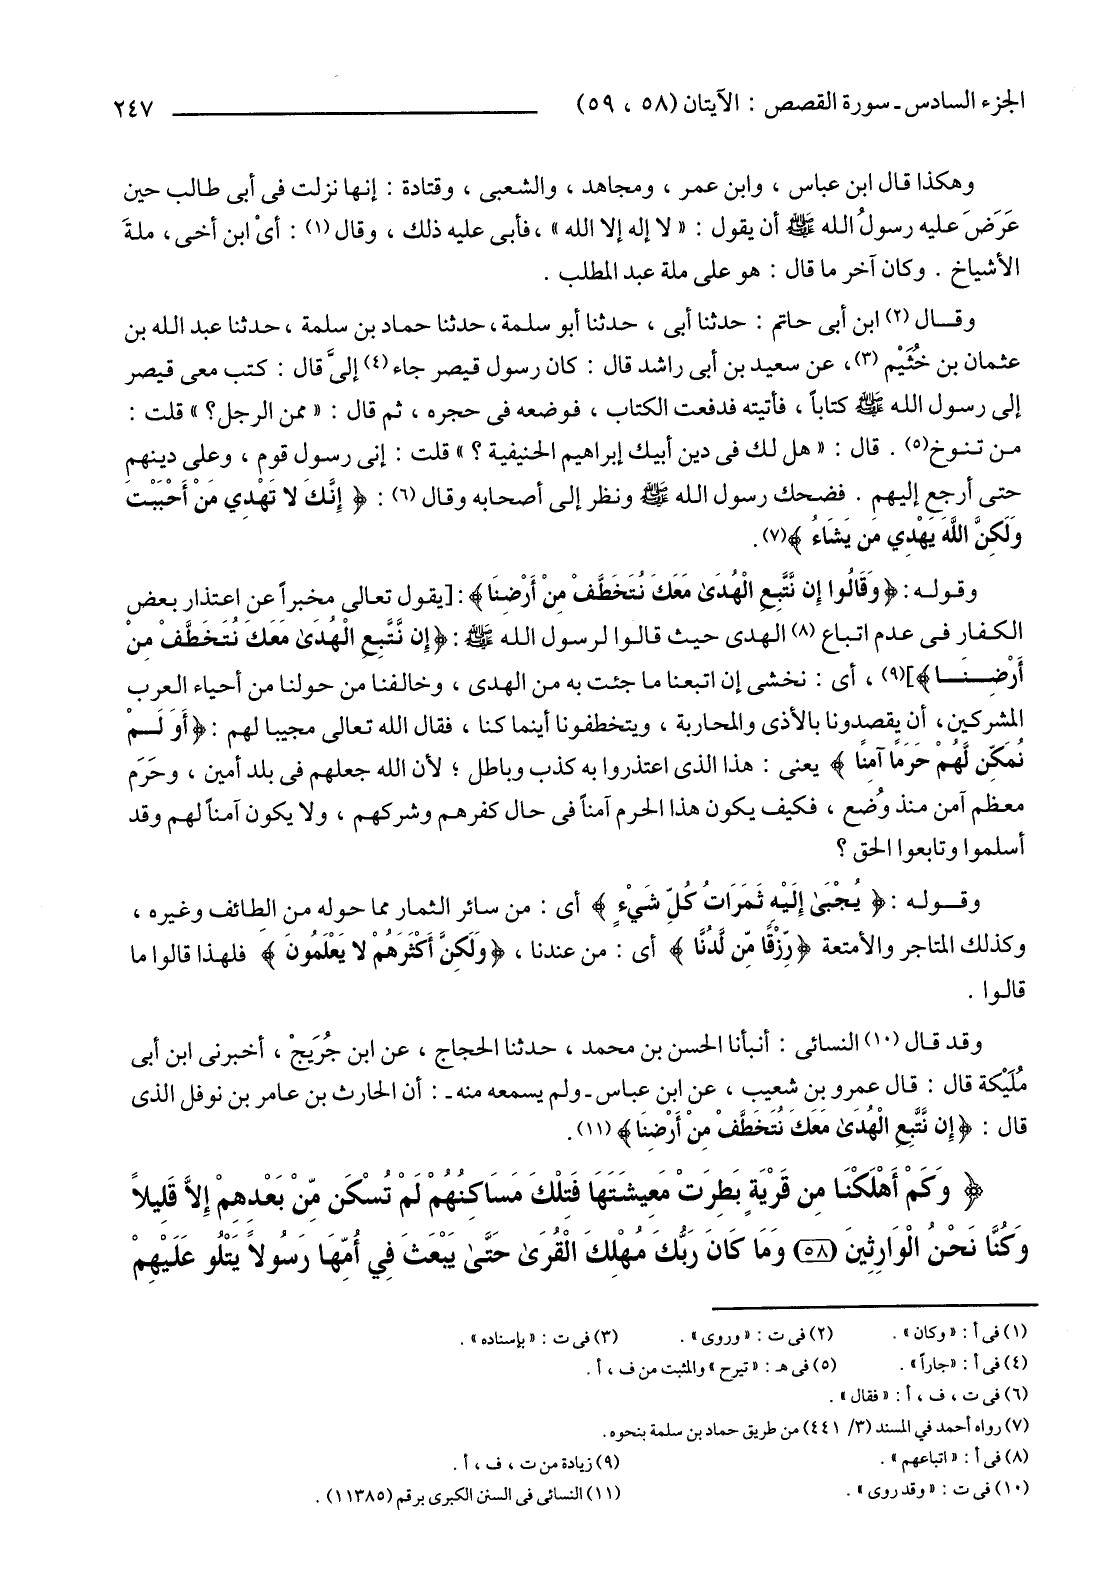 الجزء السادس ـ سورة القصص : الآيتان (٥٨ ، ٥٩) ٢٤٧
وهكذا قال ابن عباس ، وابن عمر ، ومجاهد ، والشعبى ، وقتادة : إنها نزلت فى أبى طالب حين
عَرَضَ عليه رسولُ الله ﷺ أن يقول : « لا إله إلا الله » ،فأبى عليه ذلك ، وقال (١) : أىْ ابن أخى، ملةَ
الأشياخ . وكان آخر ما قال : هو على ملة عبد المطلب .
وقـال (٢) ابن أبى حاتم : حدثنا أبى ، حدثنا أبو سلمة، حدثنا حماد بن سلمة ، حدثنا عبد الله بن
عثمان بن خُثَيْم (٣)، عن سعيد بن أبى راشد قال : كان رسول قيصر جاء (٤) إلىَّ قال : كتب معى قيصر
إلى رسول الله ﷺ كتاباً ، فأتيته فدفعت الكتاب ، فوضعه فى حجره ، ثم قال : « ممن الرجل؟ » قلت :
مـن تنـوخ(٥) . قال : « هل لك فى دين أبيك إبراهيم الحنيفية ؟ » قلت : إنى رسول قوم ، وعلى دينهم
حتى أرجع إليهم . فضحك رسول الله ﷺ ونظر إلى أصحابه وقال (٦) : ﴿ إِنَّكَ لا تَهْدِي مَنْ أَحْبَبْتَ
وَلَكِنَّ اللَّهَ يَهْدِي مَن يَشَاءُ ﴾(٧).
وقـولـه : ﴿وَقَالُوا إِن نَّتَّبِعِ الْهُدَىٰ مَعَكَ نُتَخَطَّفْ مِنْ أَرْضِنَا﴾ : [يقول تعالى مخبراً عن اعتذار بعض
الكفار فى عدم اتباع (٨) الهدى حيث قالوا لرسول الله ﷺ : ﴿إِن نَّتَّبِعِ الْهُدَىٰ مَعَكَ نُتَخَطَّفْ مِنْ
أَرْضِـنَــا﴾](٩) ، أى : نخشى إن اتبعنا ما جئت به من الهدى ، وخالفنا من حولنا من أحياء العرب
المشركين، أن يقصدونا بالأذى والمحاربة ، ويتخطفونا أينما كنا ، فقال الله تعالى مجيبا لهم : ﴿أَوَ لَـمْ
نُمَكِّن لَّهُمْ حَرَمًا آمِنًا ﴾ يعنى : هذا الذى اعتذروا به كذب وباطل ؛ لأن الله جعلهم فى بلد أمين ، وحَرَم
معظم آمن منذ وُضع ، فكيف يكون هذا الحرم آمناً فى حال كفرهم وشركهم ، ولا يكون آمناً لهم وقد
أسلموا وتابعوا الحق ؟
وقـولـه : ﴿ يُجْبَىٰ إِلَيْهِ ثَمَرَاتُ كُلِّ شَيْءٍ ﴾ أى : من سائر الثمار مما حوله من الطائف وغيره ،
وكذلك المتاجر والأمتعة ﴿رِزْقًا مِّن لَّدُنَّا ﴾ أى : من عندنا ، ﴿وَلَكِنَّ أَكْثَرَهُمْ لا يَعْلَمُونَ ﴾ فلهذا قالوا ما
قالوا .
وقد قـال (١٠) النسائى : أنبأنا الحسن بن محمد ، حدثنا الحجاج ، عن ابن جُرَيج ، أخبرنى ابن أبى
مُلَيْكة قال : قال عمرو بن شعيب ، عن ابن عباس ـ ولم يسمعه منه ـ : أن الحارث بن عامر بن نوفل الذى
قال : ﴿إِن نَّتَّبِعِ الْهُدَىٰ مَعَكَ نُتَخَطَّفْ مِنْ أَرْضِنَا﴾ (١١).
﴿ وَكَمْ أَهْلَكْنَا مِن قَرْيَةٍ بَطِرَتْ مَعِيشَتَهَا فَتِلْكَ مَسَاكِنُهُمْ لَمْ تُسْكَن مِّنْ بَعْدِهِمْ إِلاَّ قَلِيلاً
وَكُنَّا نَحْنُ الْوَارِثِينَ (٥٨) وَمَا كَانَ رَبُّكَ مُهْلِكَ الْقُرَىٰ حَتَّىٰ يَبْعَثَ فِي أُمِّهَا رَسُولاً يَتْلُو عَلَيْهِمْ
(١) فى أ : «وكان» . (٢) فى ت : «وروى» . (٣) فى ت : «بإسناده» .
(٤) فى أ : «جاراً» . (٥) فى هـ : «تيرح» والمثبت من ف ، أ .
(٦) فى ت ، ف ، أ : «فقال» .
(٧) رواه أحمد في المسند (٣/ ٤٤١) من طريق حماد بن سلمة بنحوه.
(٨) فى أ : «اتباعهم» . (٩) زيادة من ت ، ف ، أ .
(١٠) فى ت : «وقد روى» . (١١) النسائى فى السنن الكبرى برقم (١١٣٨٥) .